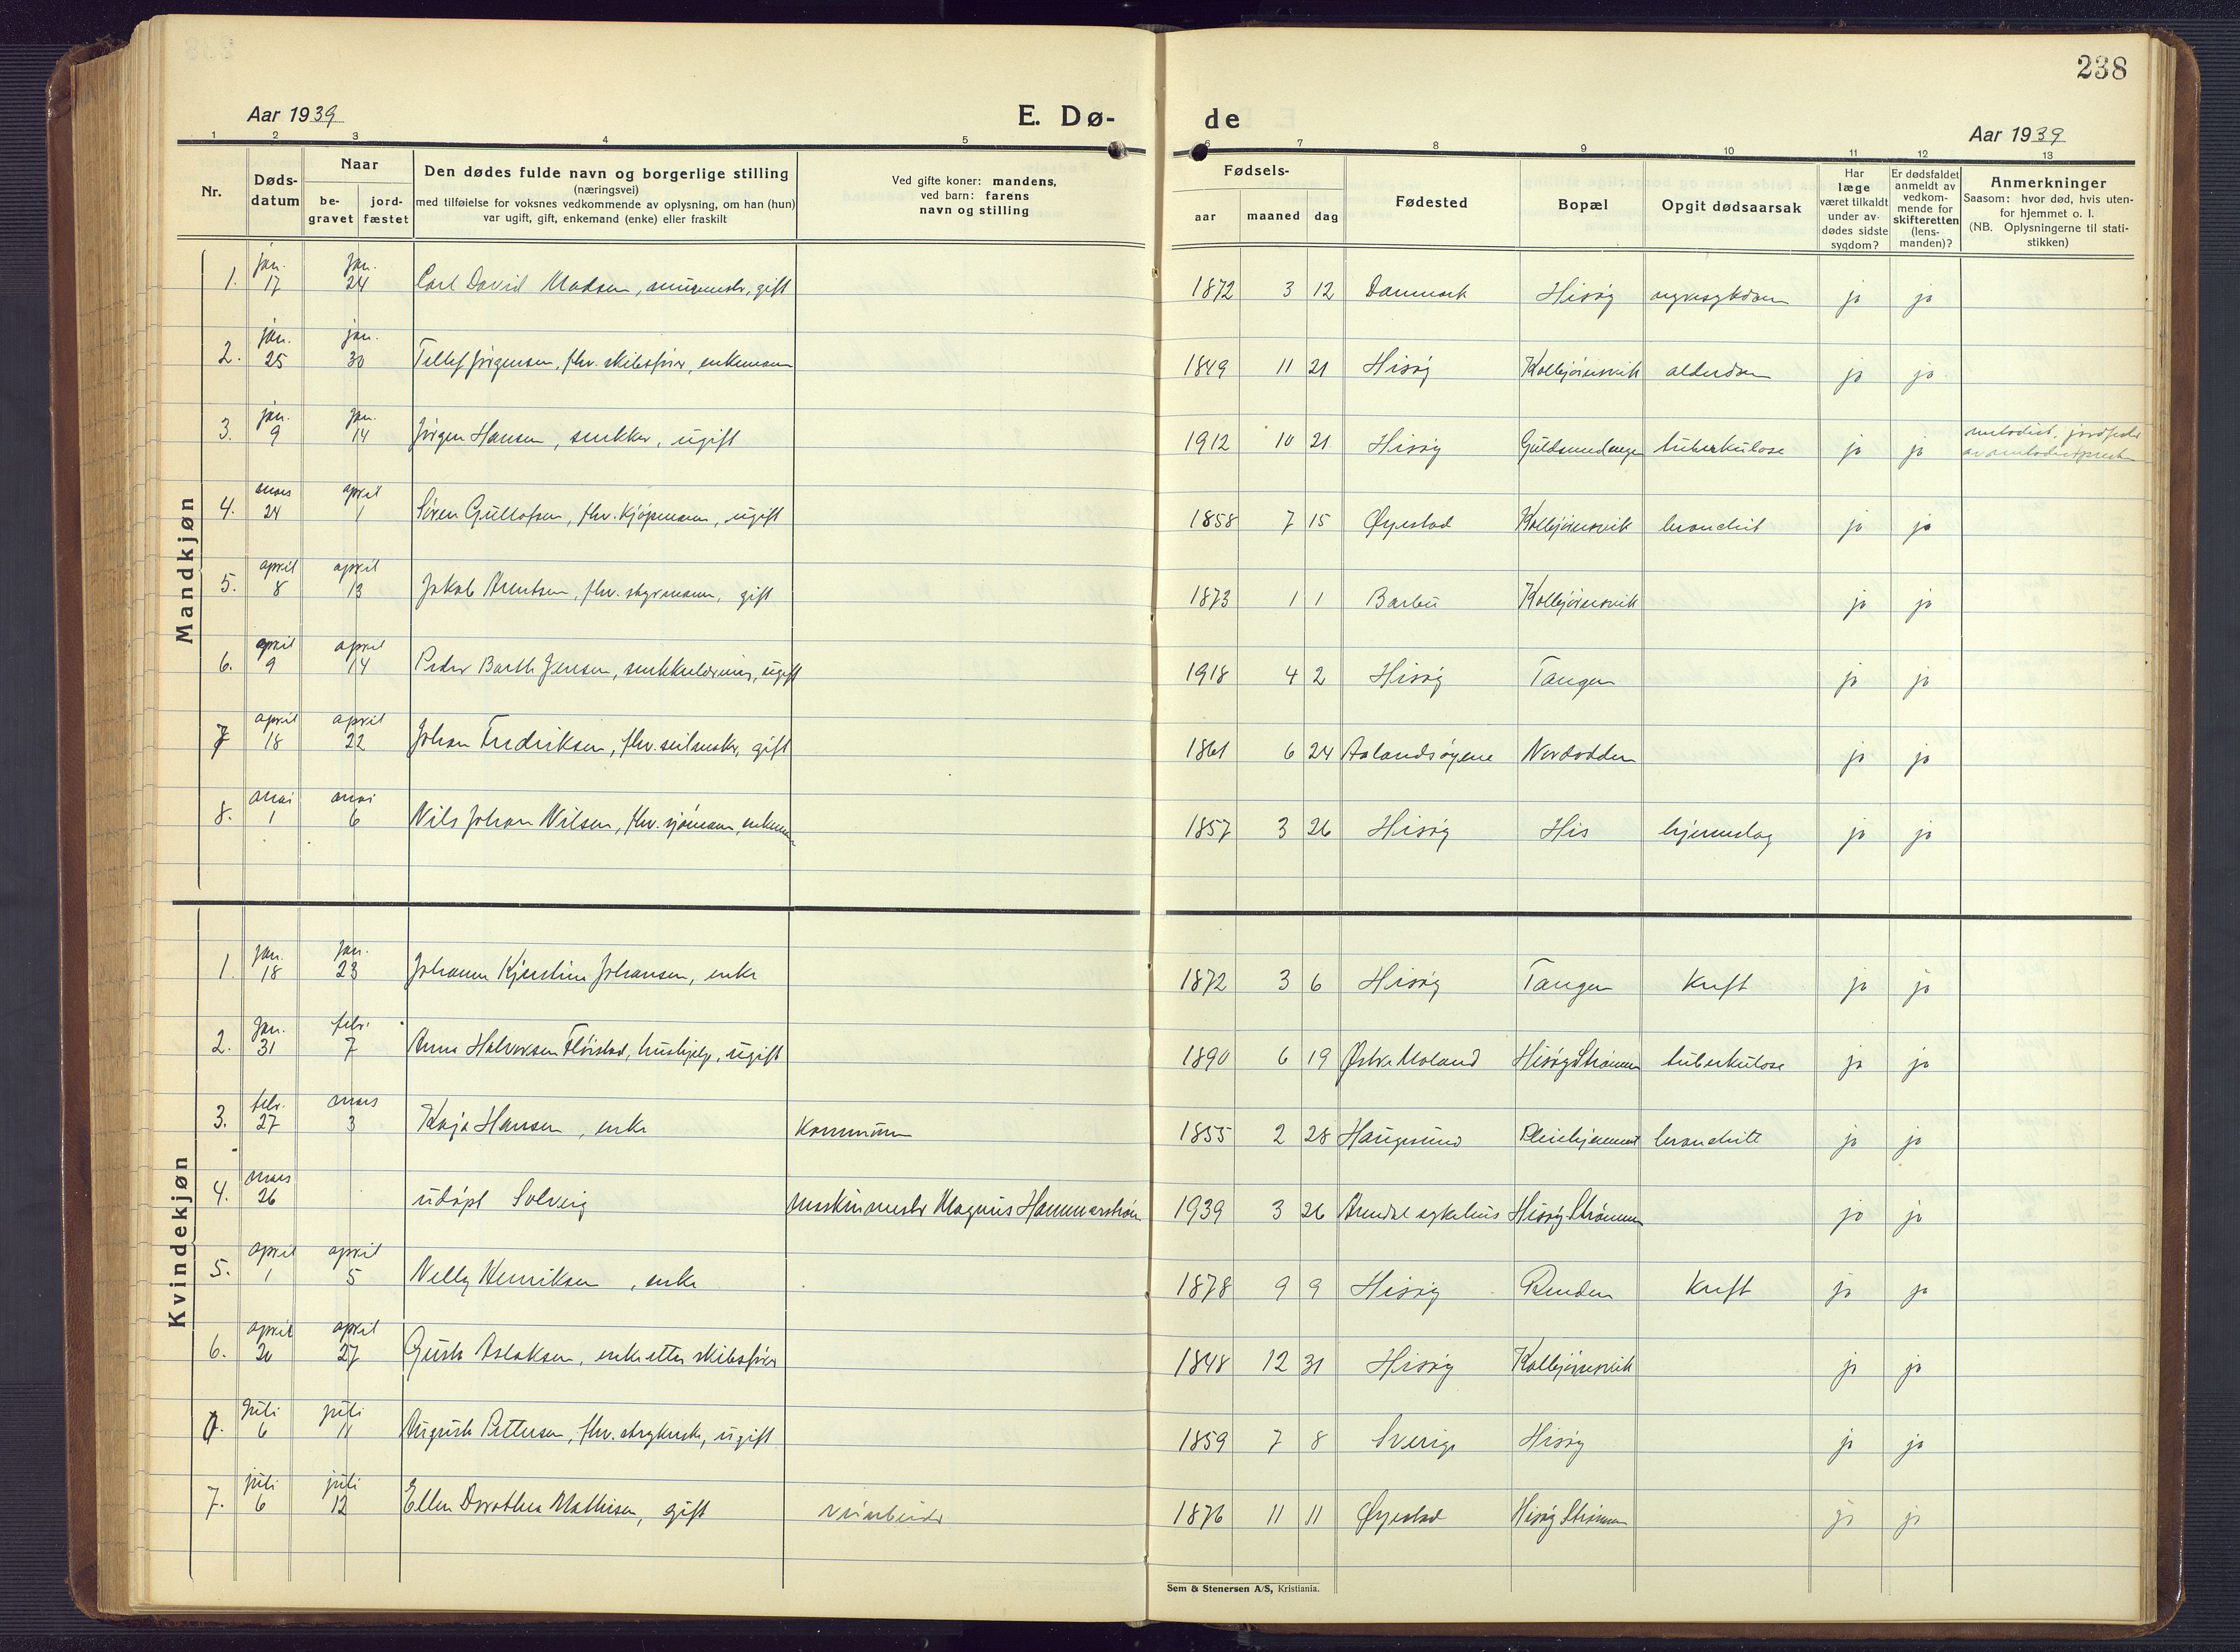 238
Aar 1939
E. Dø-
de
Aar 1939
1 2 3 4 5 6 7 8 9 10 11 12 13
Nr.
Døds-
datum
Naar
be-
gravet
jord-
fæstet
Den dødes fulde navn og borgerlige stilling
(næringsvei)
med tilføielse for voksnes vedkommende av oplysning, om han (hun)
var ugift, gift, enkemand (enke) eller fraskilt
Ved gifte koner: mandens,
ved barn: farens
navn og stilling
Fødsels-
aar maaned dag
Fødested
Bopæl
Opgit dødsaarsak
Har
læge
været tilkaldt
under av-
dødes sidste
sygdom?
Er dødsfaldet
anmeldt av
vedkom-
mende for
skifteretten
(lens-
manden)?
Anmerkninger
Saasom: hvor død, hvis uten-
for hjemmet o. l.
(NB. Oplysningerne til stati-
stikken)
Mandkjøn
jan. jan.
1. 17 24 Carl David Madsen, gift 1872 3 12 Danmark Hisøy ja ja
jan. jan.
2. 25 30 Tellef Jörgensen, fhv. skibsfører, enkemann 1849 11 21 Hisøy Kolbjörnsvik alderdom ja ja
jan. jan.
3. 9 14 Jörgen Hansen, snekker, ugift 1912 10 21 Hisøy Guldsmedengen tuberkulose ja ja metodist, jordfestet
av metodistprest
mars april
4. 24 1 Sören Gullofsen, fhv. kjøpmann, ugift 1858 7 15 Øyestad Kolbjörnsvik bronchit ja ja
april april
5. 8 13 Jakob Arentsen, fhv. styrmann, gift 1873 1 1 Barbu Kolbjörnsvik ja ja
april april
6. 9 14 Peder Barth Jensen, ugift 1918 4 2 Hisøy Tangen ja ja
april april
7 18 22 Johan Fredriksen, fhv. seilmaker, gift 1861 6 24 Aalandsøyene Nordodden ja ja
mai mai
8. 1 6 Nils Johan Nilsen, fhv. sjömann, enkemann 1857 3 26 Hisøy His hjerneslag ja ja
Kvindekjøn
jan. jan.
1. 18 23 Johanne Kjerstine Johansen, enke 1872 3 6 Hisøy Tangen Kreft ja ja
jan. febr.
2. 31 7 Anna Halvorsen Flöistad, hushjelp, ugift 1890 6 19 Østre Moland Hisøy Strömmen tuberkulose ja ja
febr. mars
3. 27 3 Kaja Hansen, enke 1855 2 28 Haugesund Pleiehjemmet bronchitt ja ja
mars
4. 26 udöpt Solveig maskinmester Magnus Hammarström 1939 3 26 Arendal sykehus Hisøy Strömmen ja ja
april april
5. 1 5 Nelly Henriksen, enke 1878 9 9 Hisøy Renden Kreft ja ja
april april
6. 20 27 Gusta Aslaksen, enke etter skibsfører 1848 12 31 Hisøy Kolbjörnsvik ja ja
juli juli
6 11 Augusta Pettersen, fhv. strykerske, ugift 1859 7 8 Sverige Hisøy ja ja
juli juli
7. 6 12 Ellen Dorothea Mathisen, gift 1876 11 11 Øyestad Hisøy Strömmen ja ja
Sem & Stenersen A/S, Kristiania.